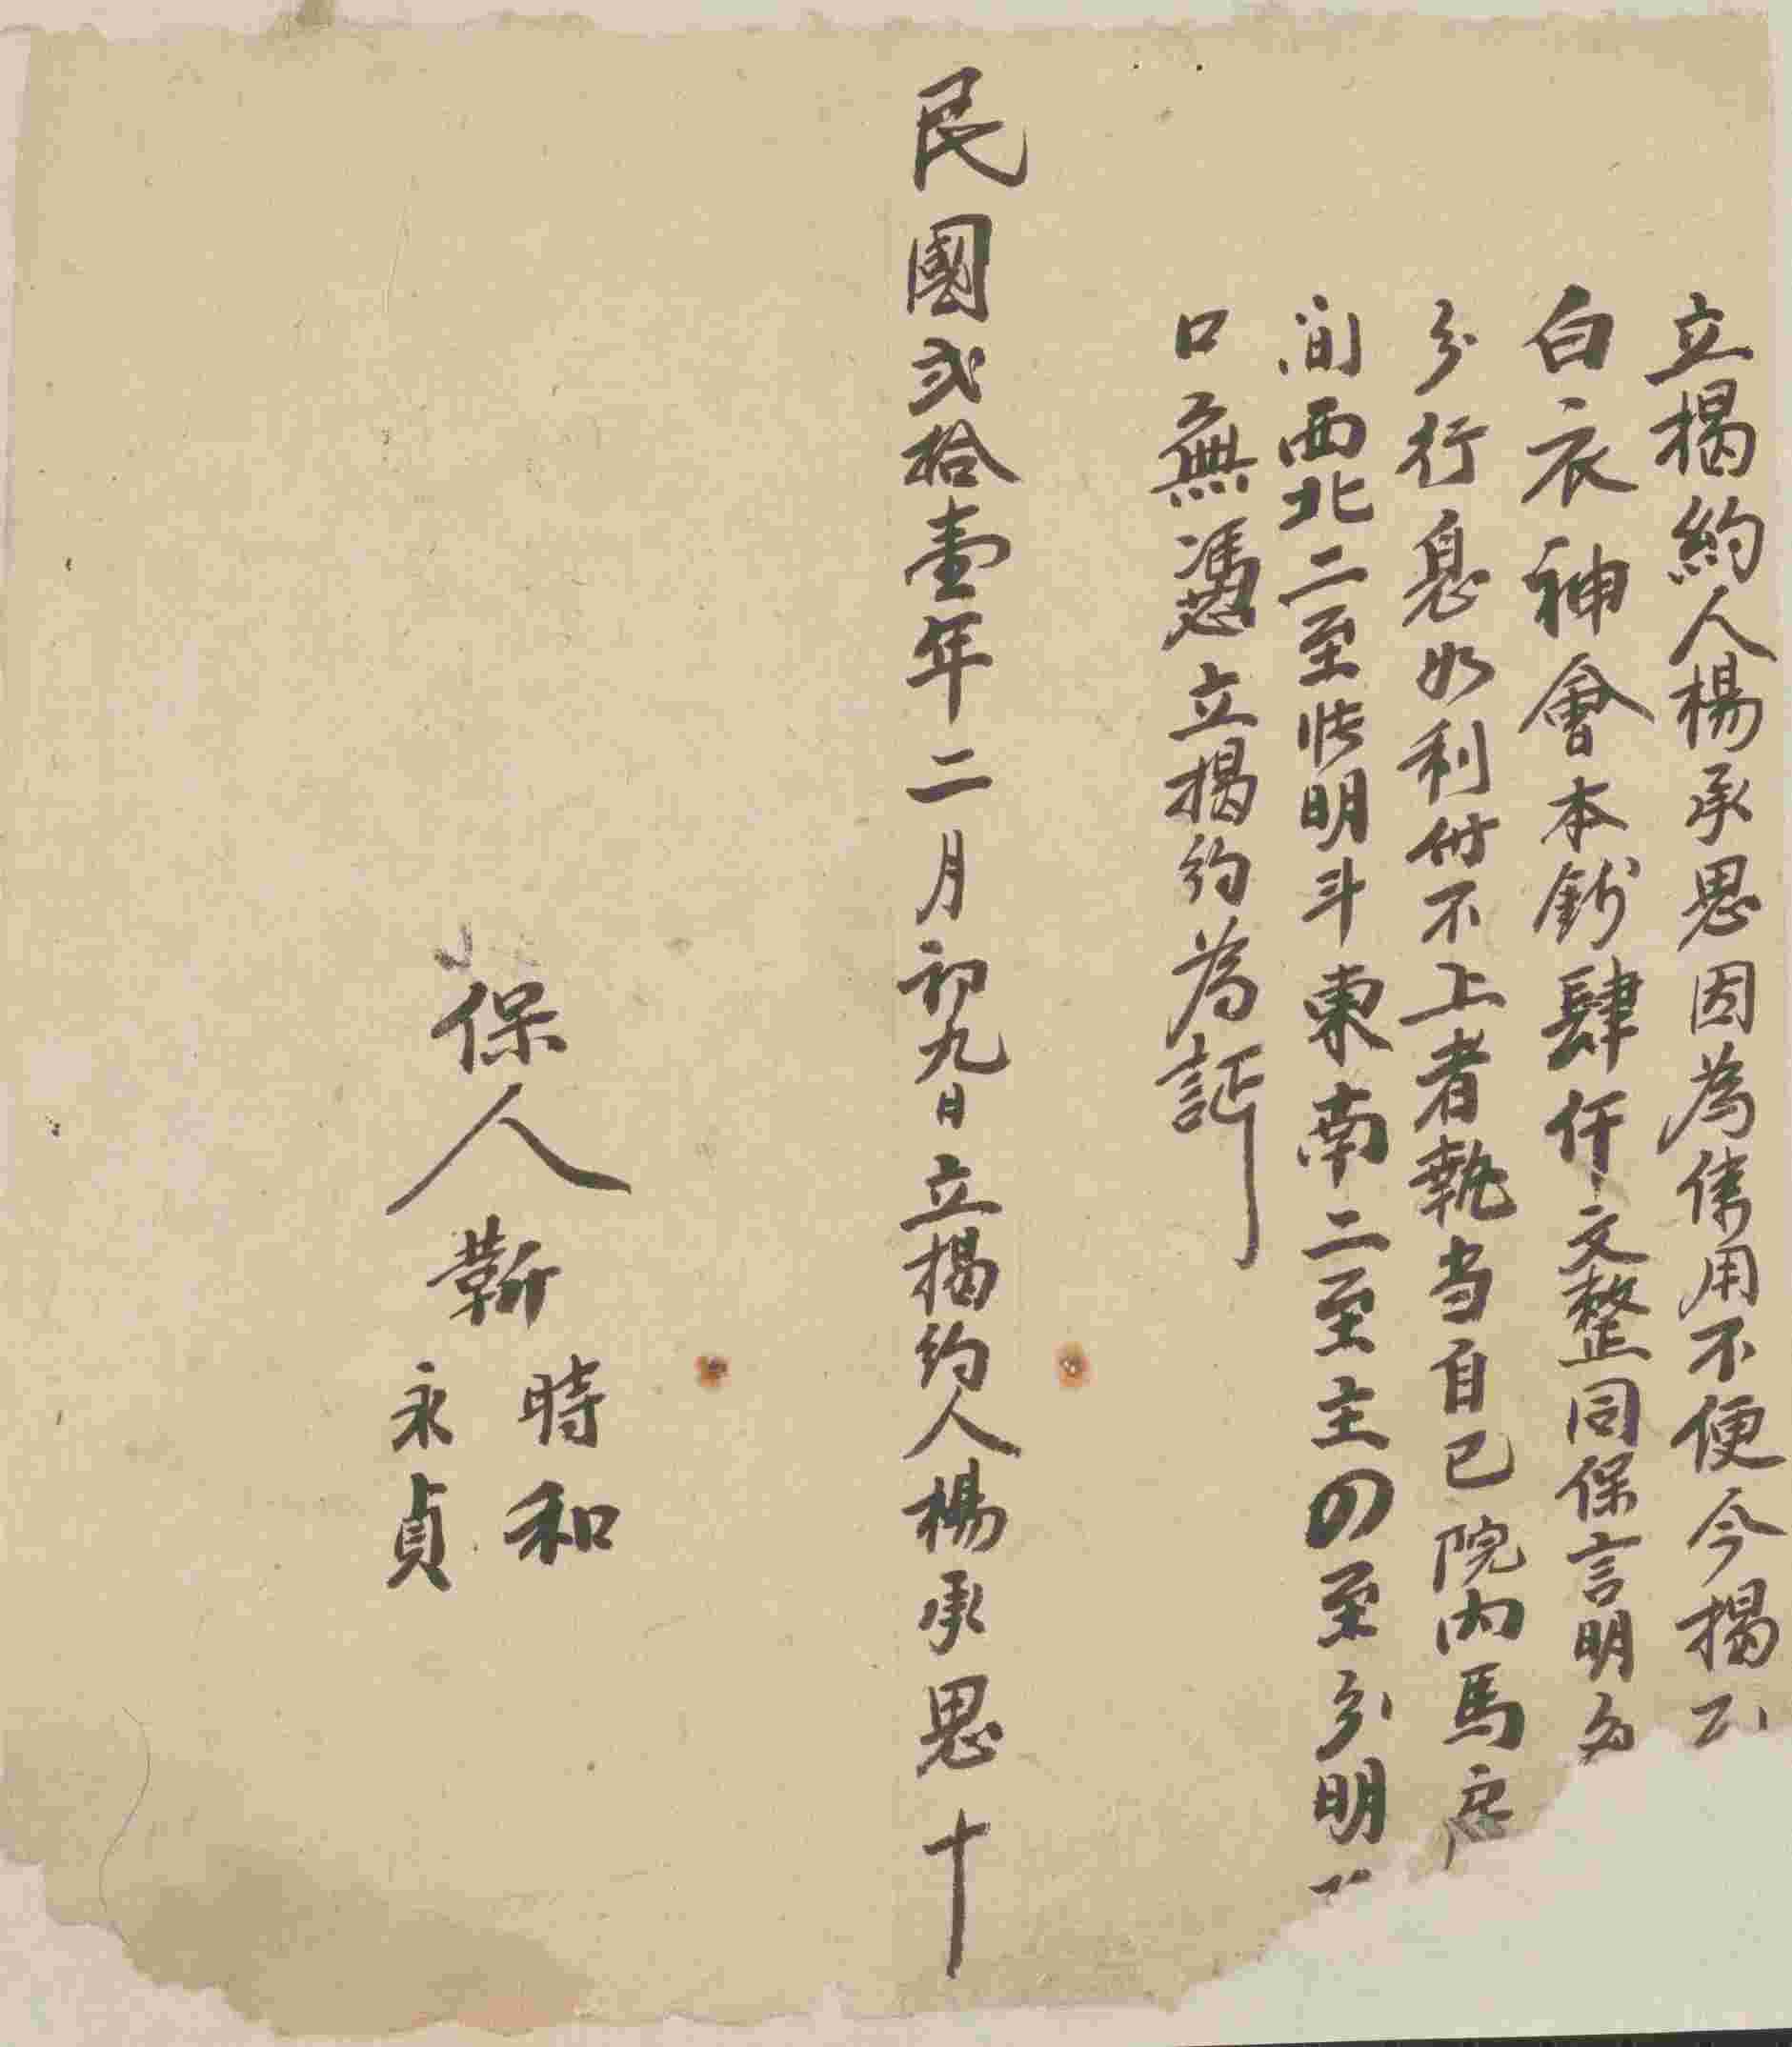 立揭約人楊承恩因為使用不便今揭
白衣神會本鈔肆仟文整同保言明
分行息如利付不上者執当自己院内馬
间西北二至明斗東南二至主四至分明
口無憑立揭约為証
民國弍拾壹年二月初九日立揭约人楊承恩十
保人靳時和
永貞